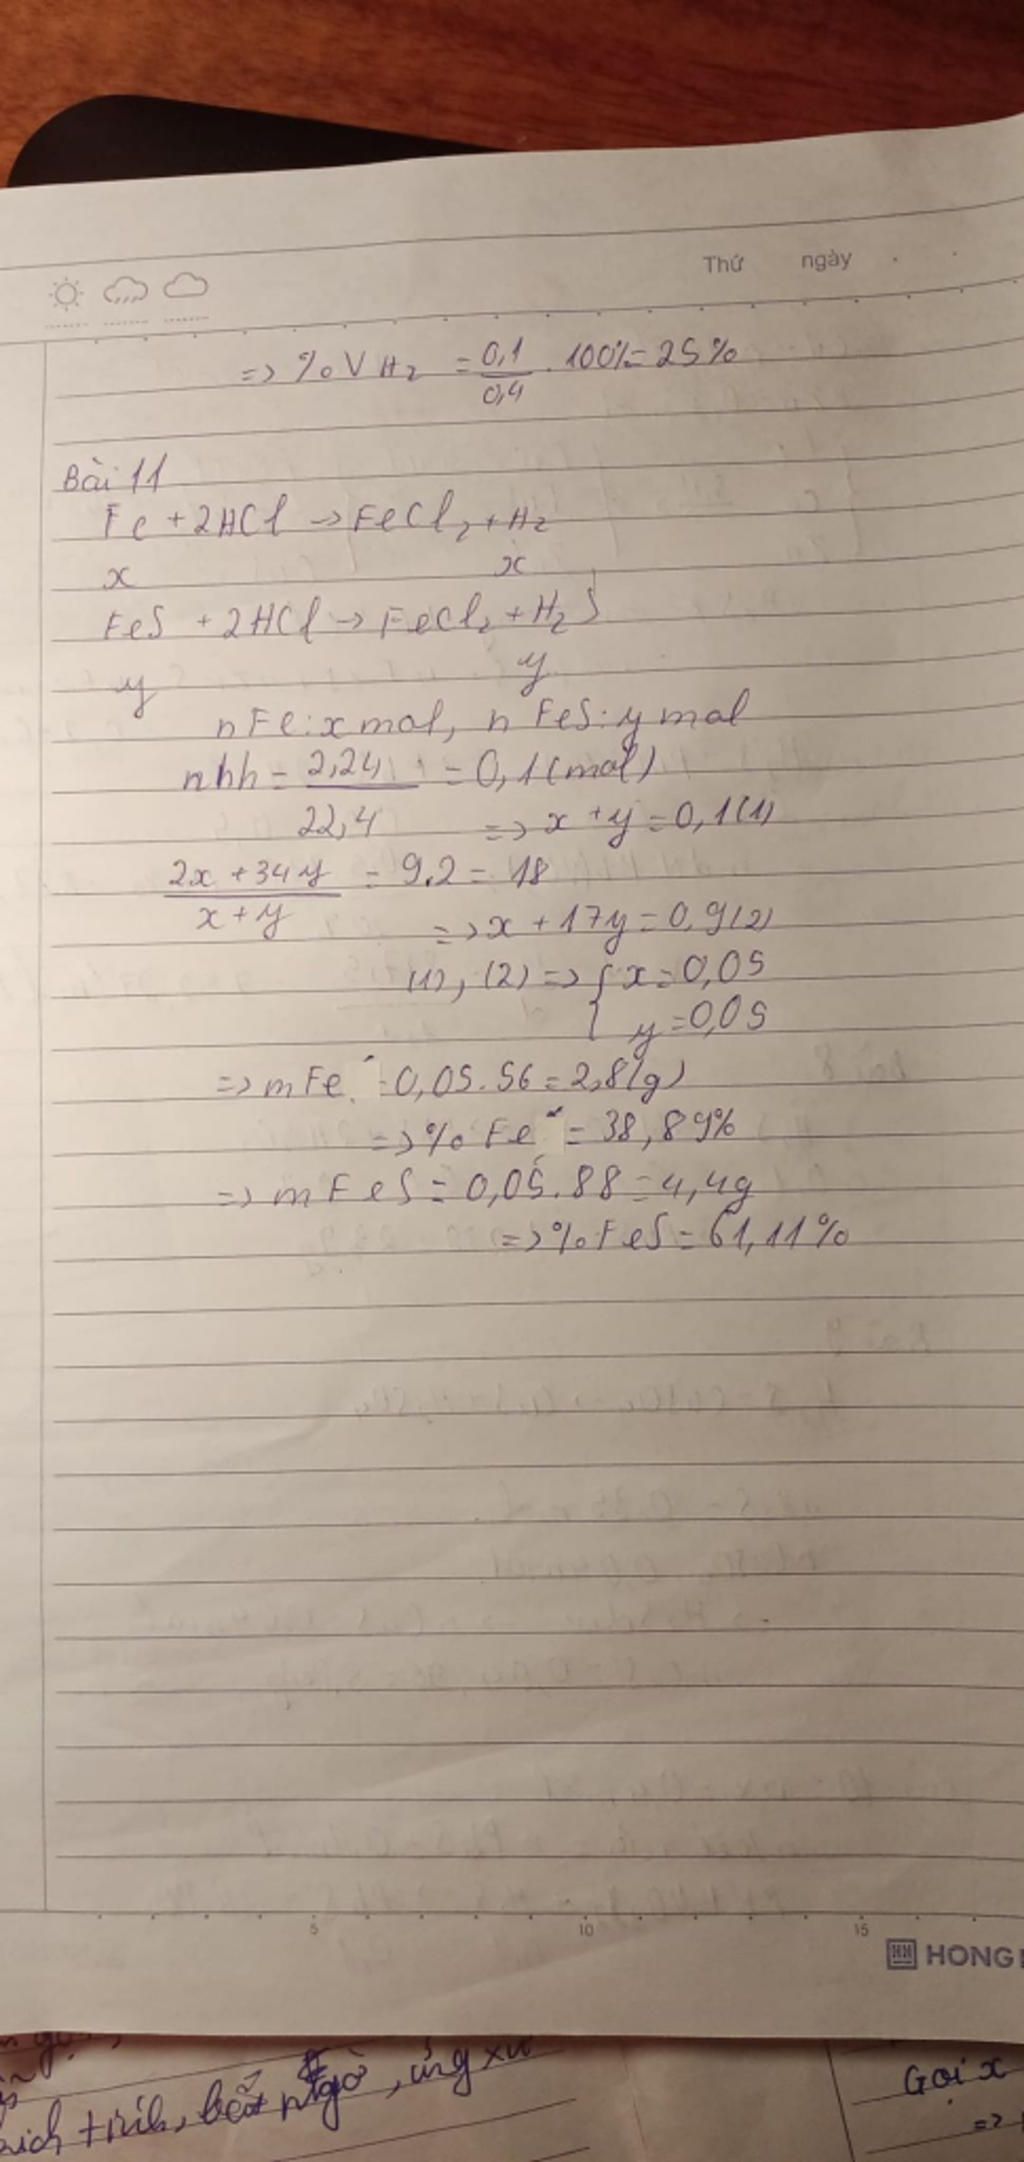 Thứ ngày
=> %V H₂ = 0,1/0,4 . 100% = 25%
Bài 11
Fe + 2HCl -> FeCl₂ + H₂
x x
FeS + 2HCl -> FeCl₂ + H₂S
y y
nFe: x mol, n FeS: y mol
nhh = 2,24/22,4 = 0,1 (mol)
=> x + y = 0,1 (1)
(2x + 34y)/(x + y) = 9.2 = 18
=> x + 17y = 0,9 (2)
(1), (2) => { x = 0,05
y = 0,05
=> mFe = 0,05.56 = 2,8(g)
=> % Fe = 38,89%
=> mFeS = 0,05.88 = 4,4g
=> % FeS = 61,11%
5 10 15
HONG
trình, bất ngờ, ứng xử
Gọi x
=>